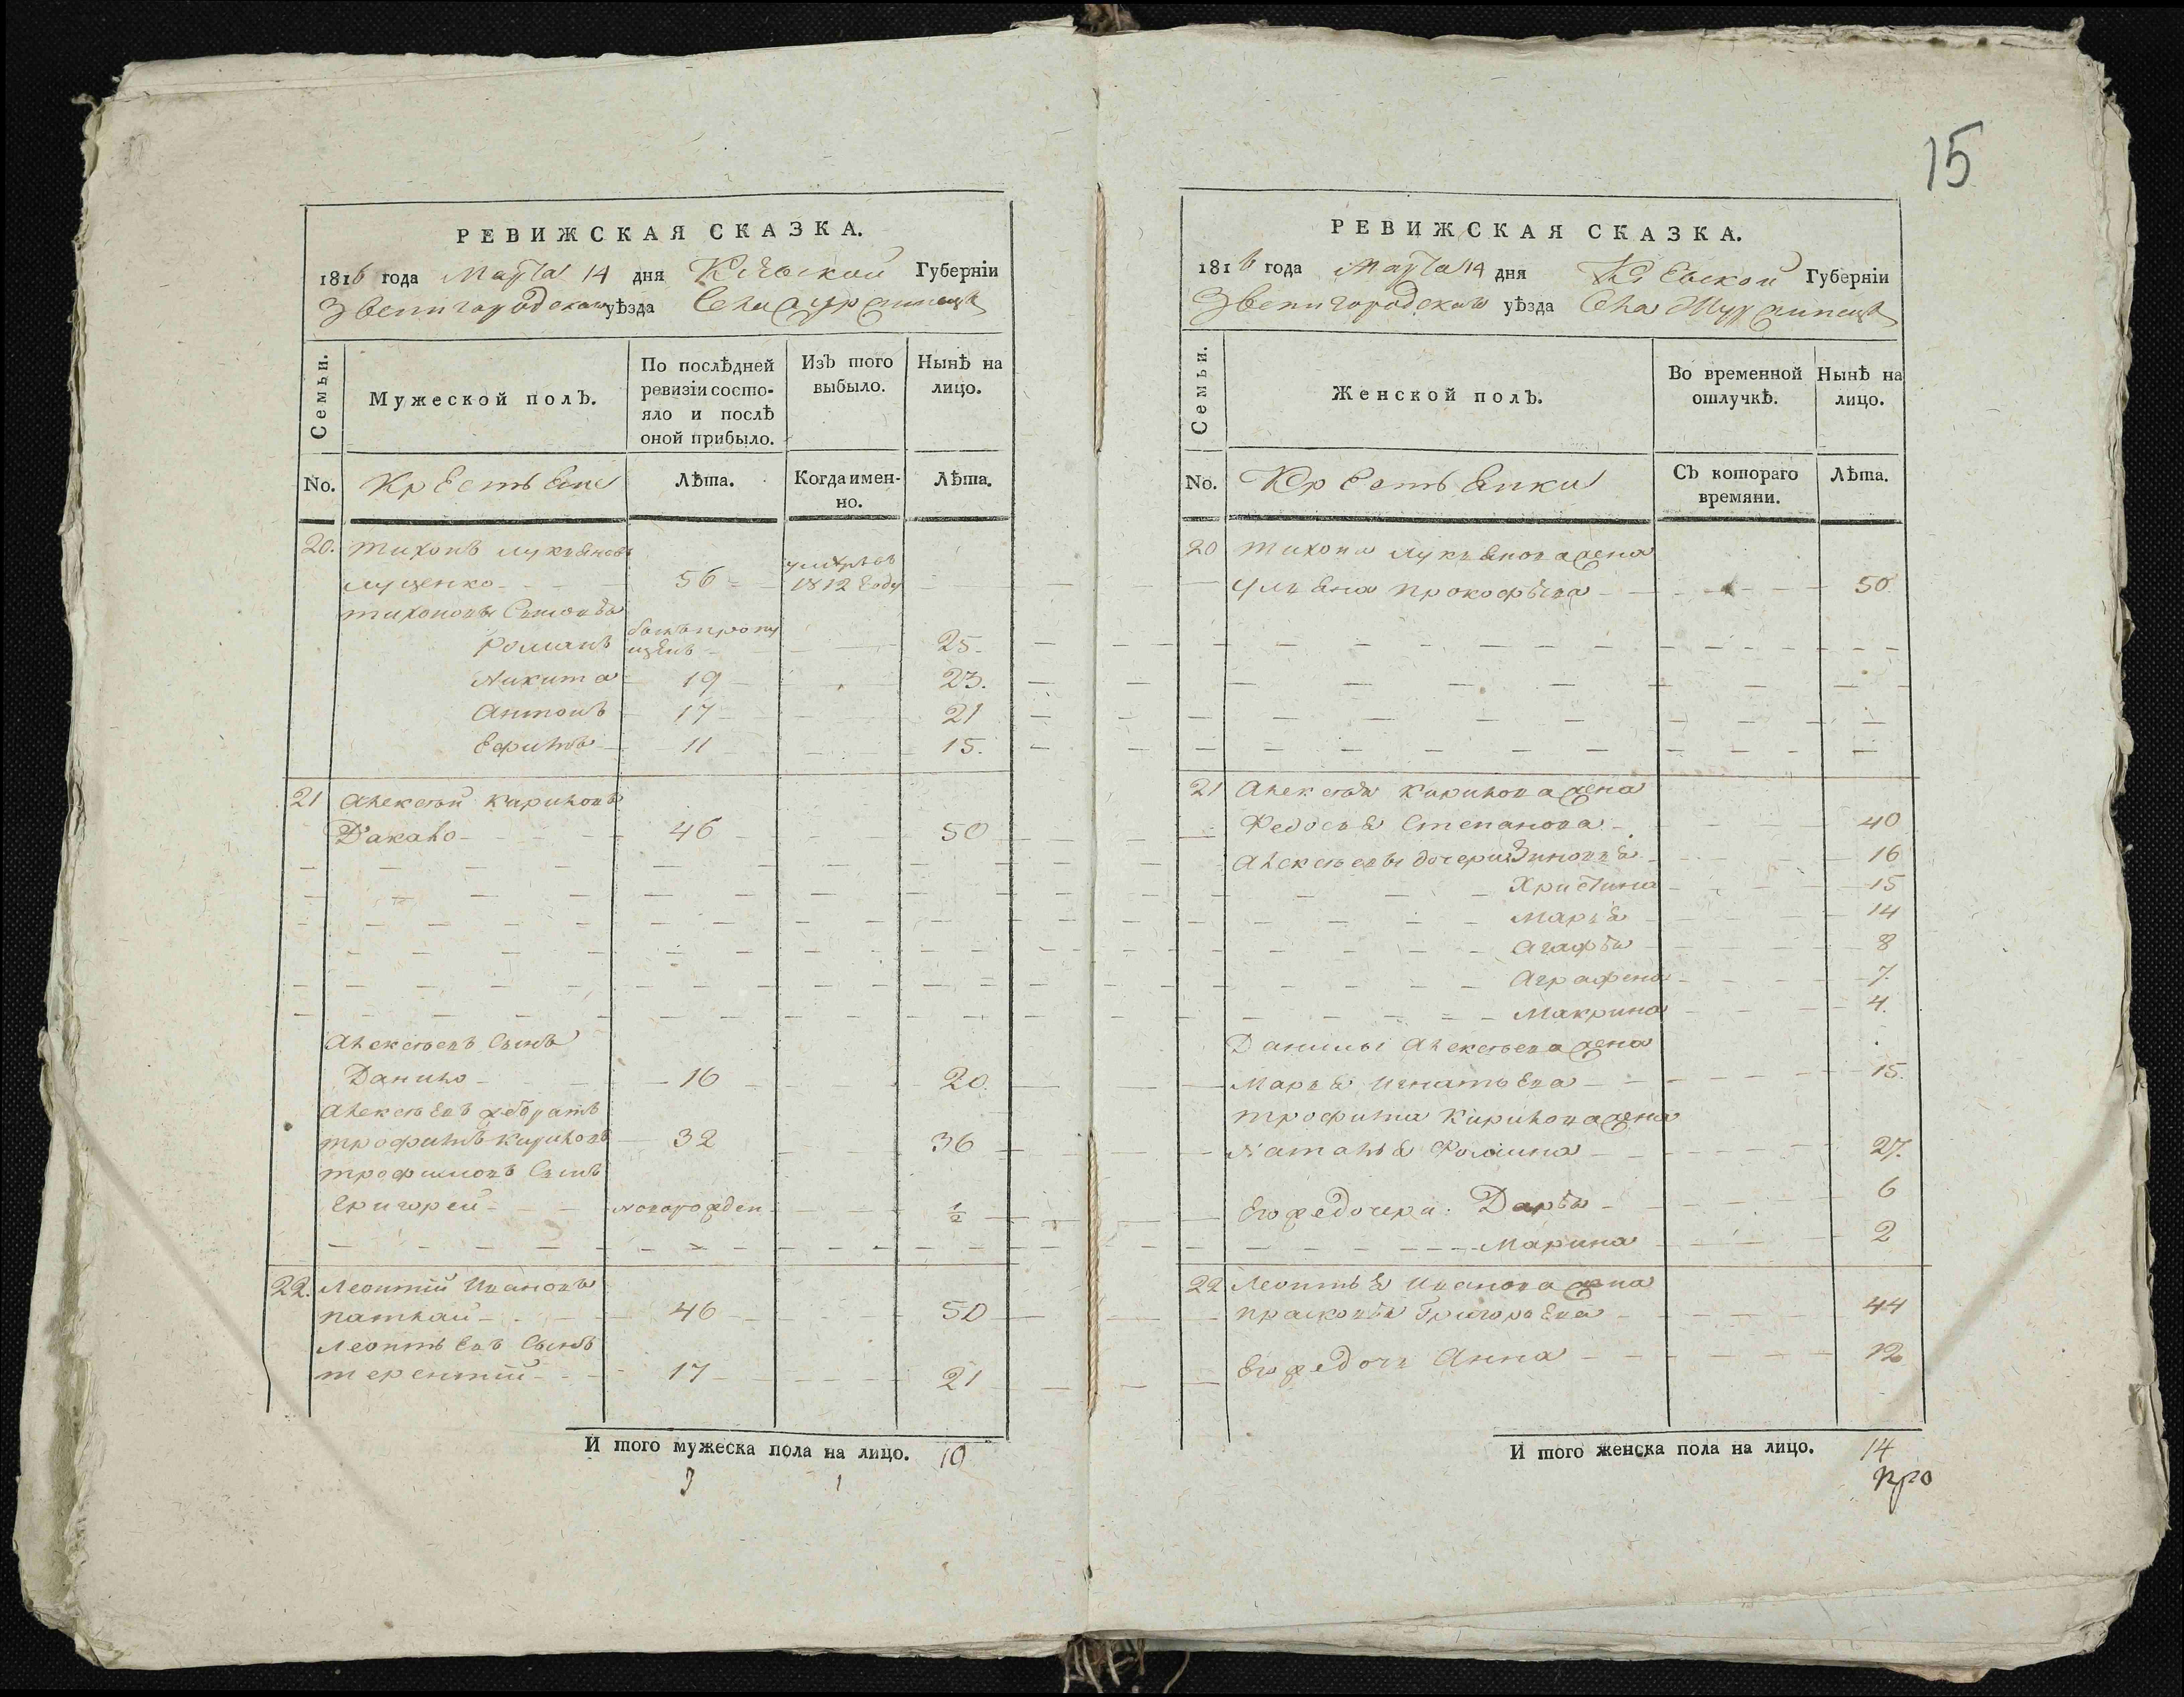 15
РЕВИЖСКАЯ СКАЗКА.
1816 года Марта 14 дня Кіевской Губерніи
Звенигородскаго уѣзда Села
Семьи.
Мужеской полъ.
По послѣдней ревизіи состо-
яло и послѣ
оной прибыло.
Изъ того
выбыло.
Нынѣ на
лицо.
No. Крестьяне Лѣта. Когда имен-
но. Лѣта.
20. Тихонъ Лукьяновъ
Луценко 56 умре въ 1812 году
Тихоновы Сыновья
Романъ былъ пропущенъ 25
Никита 19 23.
Антонъ 17 21
Ефимъ 11 15.
21 Алексѣй Кириловъ
Dакало 46 50
Алексѣевъ Сынъ
Данило 16 20.
Алексѣевъ же братъ
Трофимъ Кириловъ 32 36
Трофимовъ Сынъ
Григорей новорожден 1/2
22. Леонтій Ивановъ
46 50
Леонтьевъ Сынъ
Терентій 17 21
И того мужеска пола на лицо. 10
3 1
РЕВИЖСКАЯ СКАЗКА.
1816 года Марта 14 дня Кіевской Губерніи
Звенигородскаго уѣзда Села
Семьи.
Женской полъ.
Во временной
отлучкѣ.
Нынѣ на
лицо.
No. Крестьянки Съ котораго
времяни. Лѣта.
20 Тихона Лукьянова жена
Ульяна Прокофьева 50.
21 Алексѣя Кирилова жена
Федосья Степанова 40
Алексѣевы дочери Зиновья 16
Христина 15
Марья 14
Агафья 8
Аграфена 7.
Макрина 4.
Данилы Алексѣева жена
Марья Игнатьева 15.
Трофима Кирилова жена
Наталья Фомина 27.
Его же дочери: Дарья 6
Марина 2
22 Леонтья Иванова жена
Прасковья Григорьева 44
Его же дочь Анна 12
И того женска пола на лицо. 14